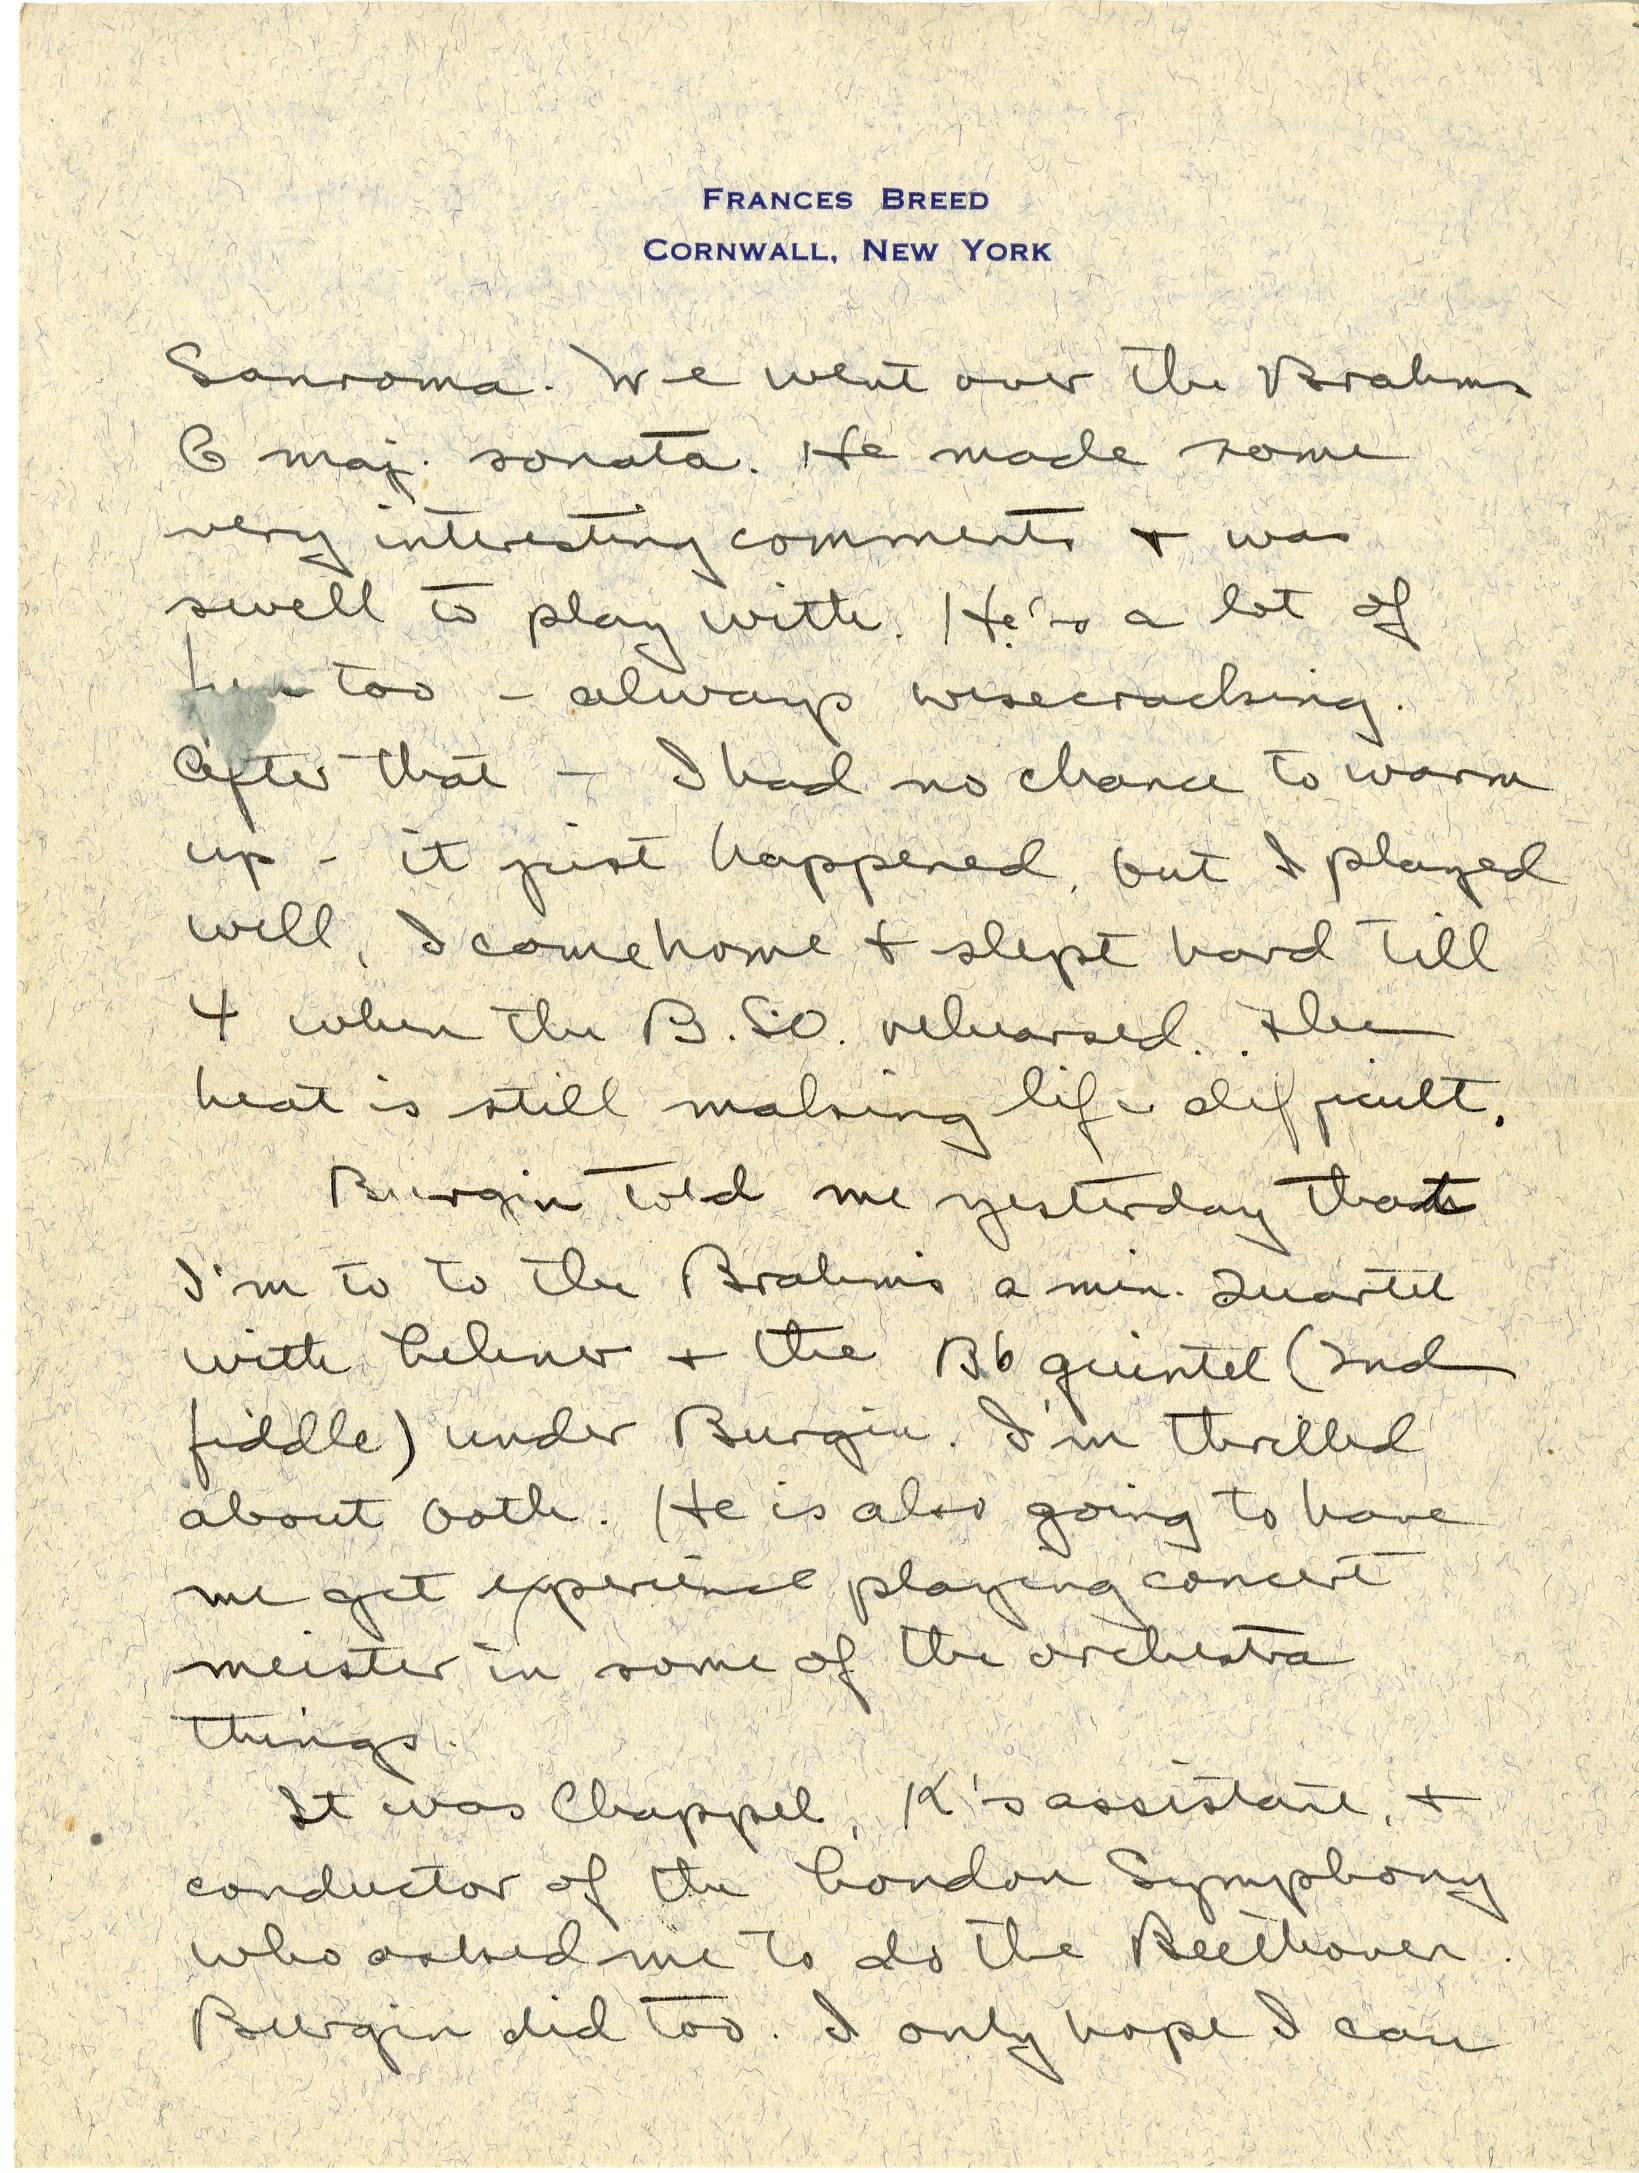 FRANCES BREED
CORNWALL, NEW YORK
Sanroma. We went over the Brahms
G maj. sonata. He made some
very interesting comments + was
swell to play with. He's a lot of
fun too – always wisecracking.
After that – I had no chance to warm
up – it just happened, but I played
well, I came home + slept hard till
4 when the B.SO. rehearsed. The
heat is still making life difficult.
Burgin told me yesterday that
I'm to to the Brahms a min. Quartet
with Lehner + the Bb quintet (2nd
fiddle) under Burgin. I'm thrilled
about both. He is also going to have
me get experience playing concert
meister in some of the orchestra
things.
It was Chappel, K's assistant, +
conductor of the London Symphony
who asked me to do the Beethoven.
Burgin did too. I only hope I can